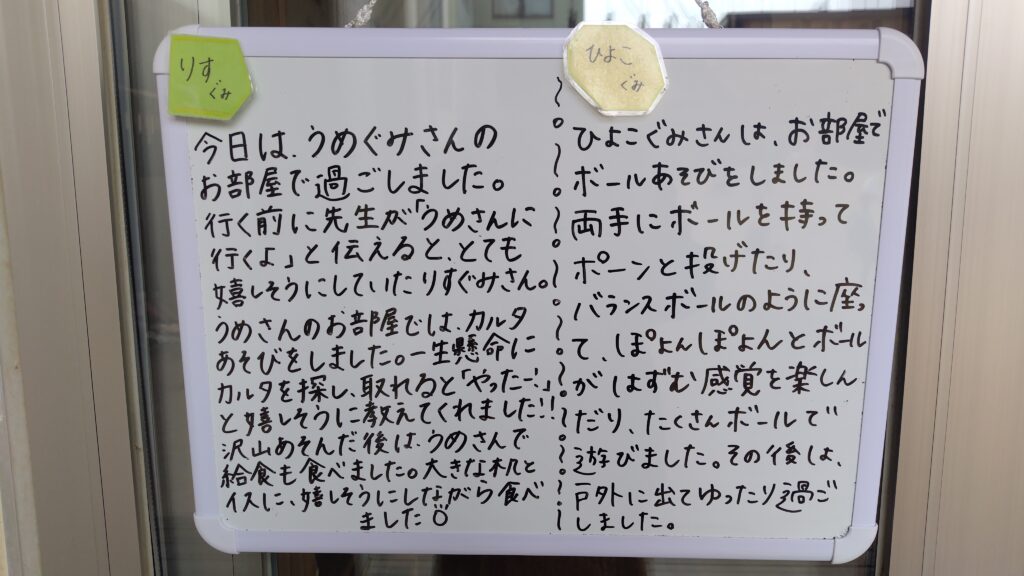 りす
ぐみ
今日は、うめぐみさんの
お部屋で過ごしました。
行く前に先生が「うめさんに
行くよ」と伝えると、とても
嬉しそうにしていたりすぐみさん。
うめさんのお部屋では、カルタ
あそびをしました。一生懸命に
カルタを探し、取れると「やったー!」
と嬉しそうに教えてくれました!!
沢山あそんだ後は、うめさんで
給食も食べました。大きな机と
イスに、嬉しそうにしながら食べ
ました
ひよこ
ぐみ
ひよこぐみさんは、お部屋で
ボールあそびをしました。
両手にボールを持って
ポーンと投げたり、
バランスボールのように座っ
て、ぽよんぽよんとボール
がはずむ感覚を楽しん
だり、たくさんボールで
遊びました。その後は、
戸外に出てゆったり過ご
しました。